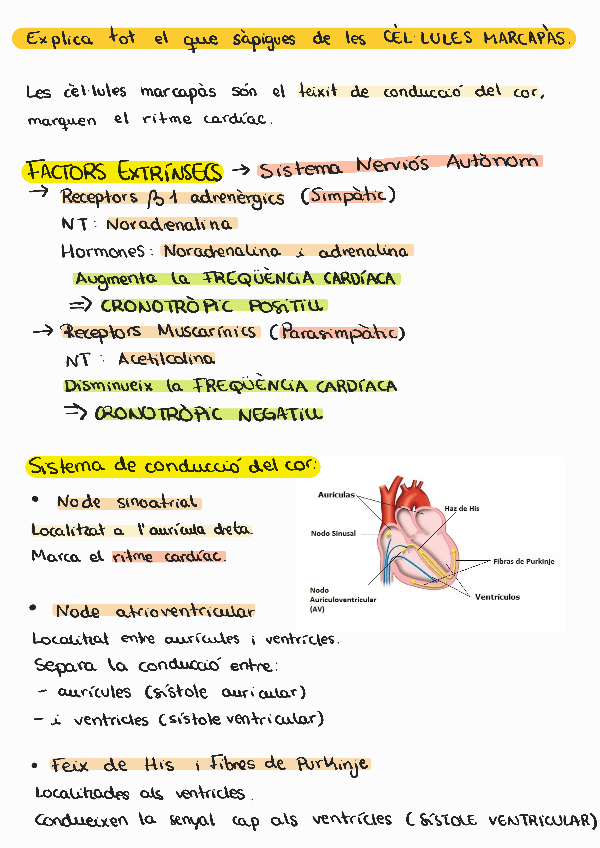 Explica tot el que sàpigues de les CÈL·LULES MARCAPÀS.
Les cèl·lules marcapàs són el teixit de conducció del cor,
marquen el ritme cardíac.
FACTORS EXTRÍNSECS → Sistema Nerviós Autònom
→ Receptors β1 adrenèrgics (Simpàtic)
NT: Noradrenalina
Hormones: Noradrenalina i adrenalina
Augmenta la FREQÜÈNCIA CARDÍACA
⇒ CRONOTRÒPIC POSITIU
→ Receptors Muscarínics (Parasimpàtic)
NT: Acetilcolina
Disminueix la FREQÜÈNCIA CARDÍACA
⇒ CRONOTRÒPIC NEGATIU
Sistema de conducció del cor:
• Node sinoatrial
Localitzat a l'aurícula dreta.
Marca el ritme cardíac.
Aurículas
Haz de His
Nodo Sinusal
Fibras de Purkinje
Nodo
Auriculoventricular
(AV)
Ventrículos
• Node atrioventricular
Localitzat entre aurícules i ventricles.
Separa la conducció entre:
- aurícules (sístole auricular)
- i ventricles (sístole ventricular)
• Feix de His i Fibres de Purkinje
Localitzades als ventricles.
Condueixen la senyal cap als ventrícles (SÍSTOLE VENTRICULAR)